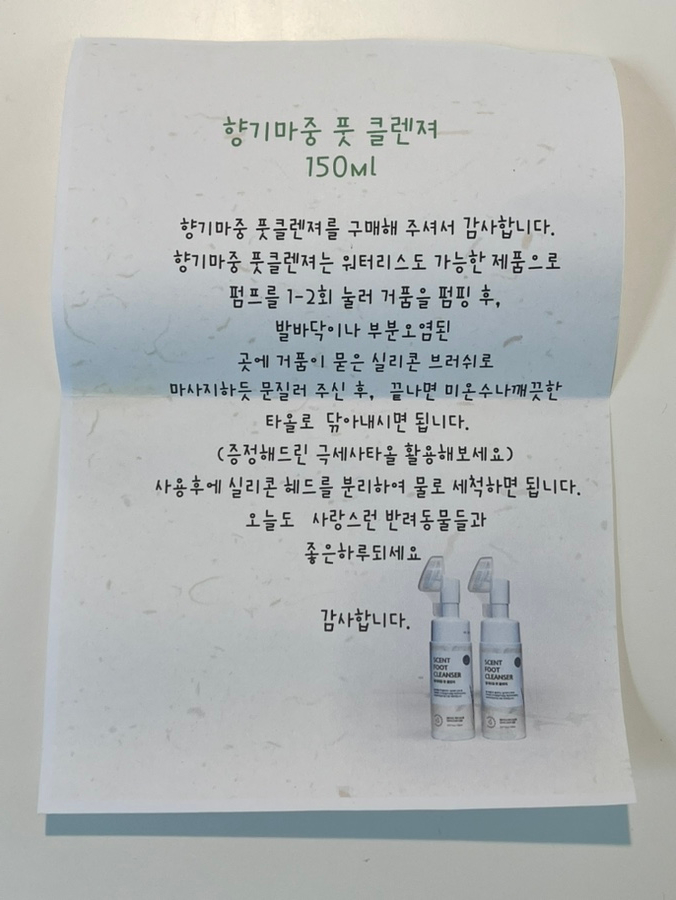 향기마중 풋 클렌져
150ml
향기마중 풋클렌져를 구매해 주셔서 감사합니다.
향기마중 풋클렌져는 워터리스도 가능한 제품으로
펌프를 1-2회 눌러 거품을 펌핑 후,
발바닥이나 부분오염된
곳에 거품이 묻은 실리콘 브러쉬로
마사지하듯 문질러 주신 후, 끝나면 미온수나깨끗한
타올로 닦아내시면 됩니다.
(증정해드린 극세사타올 활용해보세요)
사용후에 실리콘 헤드를 분리하여 물로 세척하면 됩니다.
오늘도 사랑스런 반려동물들과
좋은하루되세요
감사합니다.
SCENT
FOOT
CLEANSER
SCENT
FOOT
CLEANSER